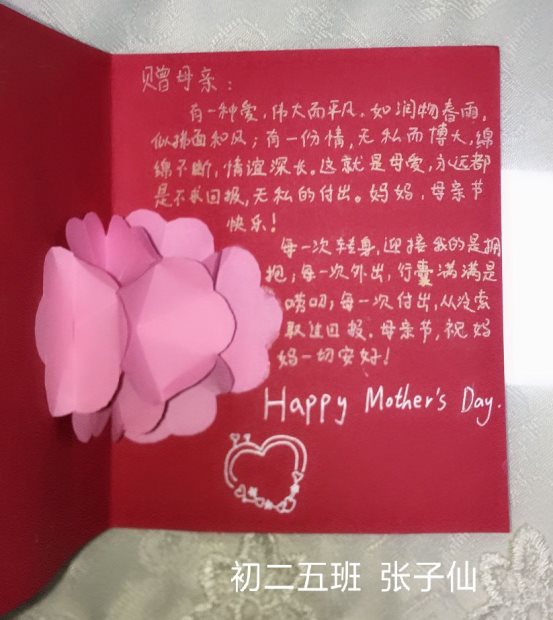 赠母亲：
有一种爱，伟大而平凡。如润物春雨，
似拂面和风；有一份情，无私而博大，绵
绵不断，情谊深长。这就是母爱，永远都
是不求回报，无私的付出。妈妈，母亲节
快乐！
每一次转身，迎接我的是拥
抱；每一次外出，行囊满满是
唠叨；每一次付出，从没索
取过回报。母亲节，祝妈
妈一切安好！
Happy Mother's Day.
初二五班 张子仙